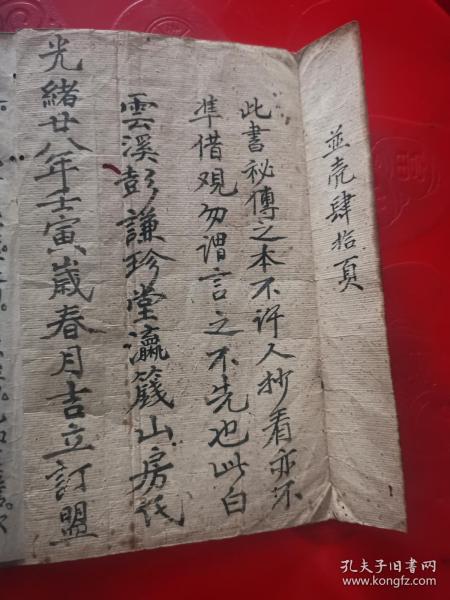 並壳肆拾頁
此書秘傳之本不許人抄看亦不
準借观勿谓言之不先也此白
雲溪彭謙珍堂瀛籛山房氏
光緒廿八年壬寅歲春月吉立訂盟
孔夫子旧书网
www.kongfz.com